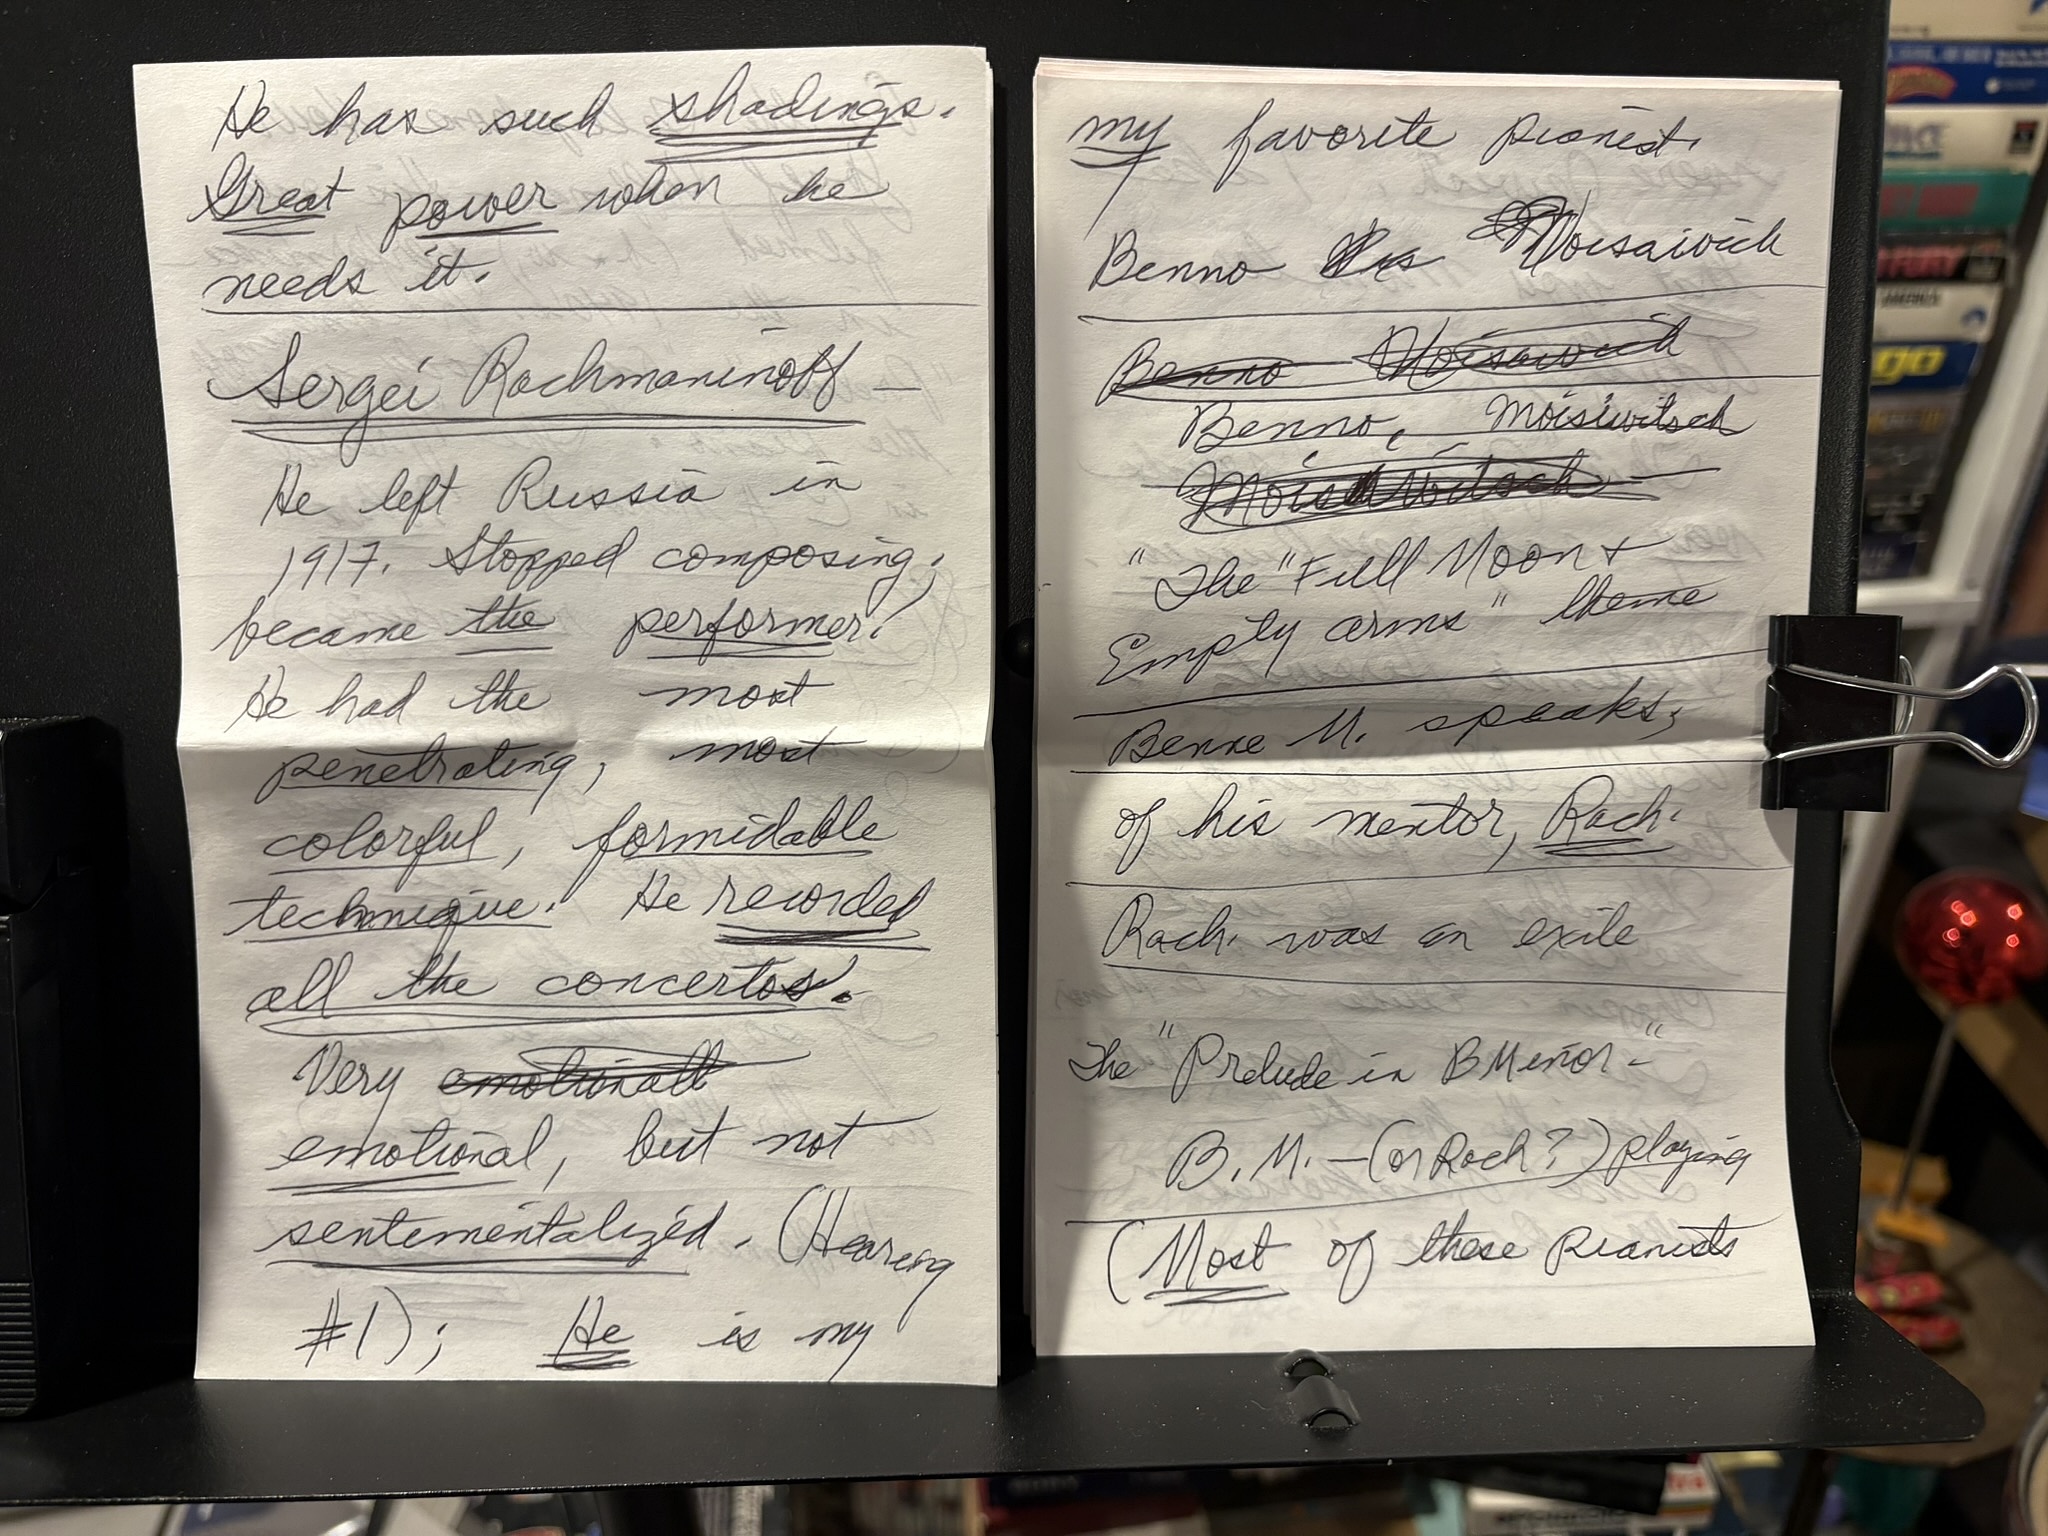 He has such shadings.
Great power when he
needs it.
Sergei Rachmaninoff —
He left Russia in
1917. Stopped composing;
became the performer!
He had the most
penetrating, most
colorful, formidable
technique. He recorded
all the concertos.
Very emotionall
emotional, but not
sentimentalized. (Hearing
#1); He is my
my favorite pianist.
Benno Moisaivich
Benno Moisawich
Benno, Moisiwitsch
Moisiwitsch
"The "Full Moon &
Empty arms" theme
Benne M. speaks;
of his mentor, Rach.
Rach. was an exile
The "Prelude in B Minor-"
B. M. — (or Rach?) playing
(Most of these pianists
FURY
AMERICA
go